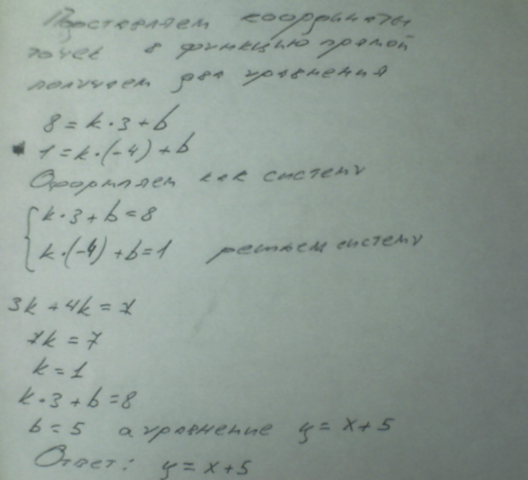 Подставляем координаты
точек в функцию прямой
получаем два уравнения
8 = k·3 + b
1 = k·(-4) + b
Оформляем как систему
{ k·3 + b = 8
k·(-4) + b = 1 решаем систему
3k + 4k = 7
7k = 7
k = 1
k·3 + b = 8
b = 5 а уравнение y = x + 5
Ответ: y = x + 5